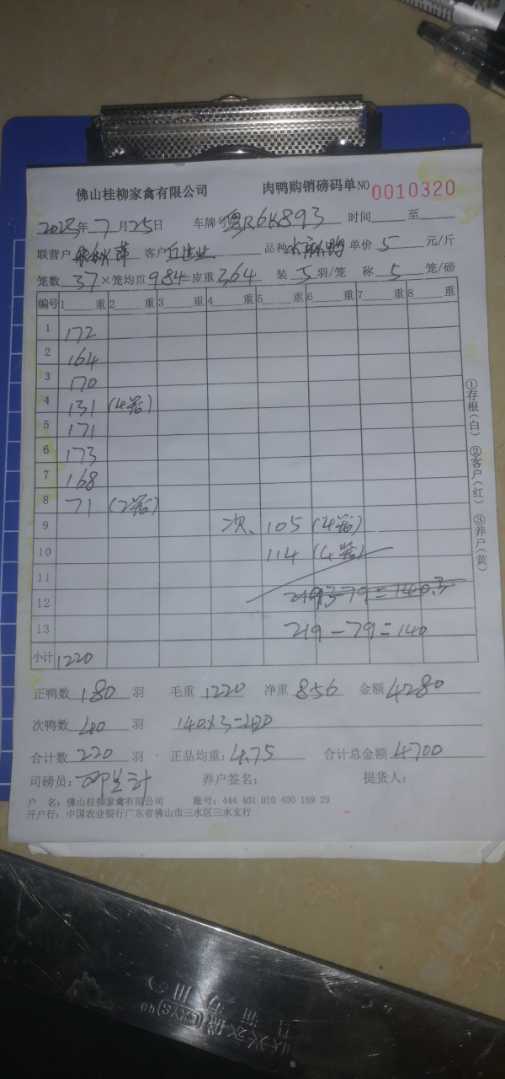 佛山桂柳家禽有限公司 肉鸭购销磅码单 NO 0010320
2023年7月25日 车牌 粤R6K893 时间 至
联营户 客户 品种 单价 5 元/斤
笼数 37 × 笼均重 9.84 皮重 364 装 5 羽/笼 称 5 笼/磅
编号 1 重 2 重 3 重 4 重 5 重 6 重 7 重 8 重
1 172
2 164
3 170
4 131 (4笼)
5 171
6 173
7 168
8 71 (2笼)
9 次、105 (4笼)
10 114 (4笼)
11
12
13 219-79=140
小计 1220
正鸭数 180 羽 毛重 1220 净重 856 金额 4280
次鸭数 40 羽 140×3=420
合计数 220 羽 正品均重: 4.75 合计总金额 4700
司磅员: 养户签名: 提货人:
户 名: 佛山桂柳家禽有限公司 账号: 444 401 010 400 169 29
开户行: 中国农业银行广东省佛山市三水区三水支行
①存根(白) ②客户(红) ③养户(黄)